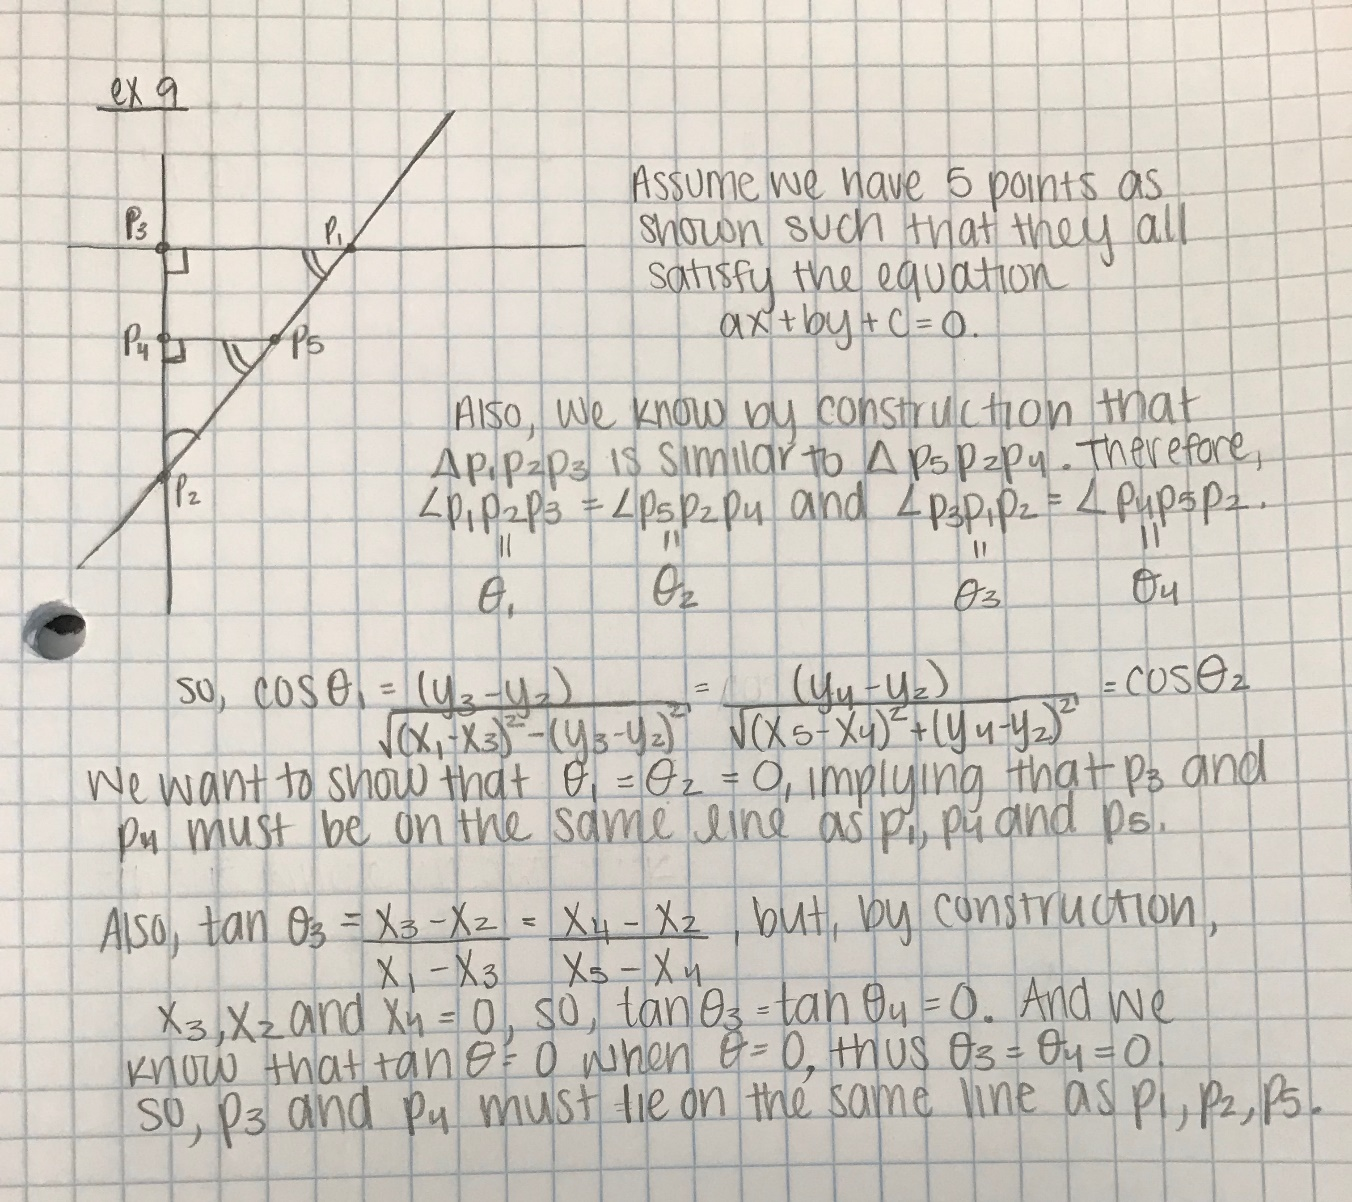 ex 9
P3
P1
P4
P5
P2
Assume we have 5 points as
shown such that they all
satisfy the equation
ax+by+c=0.
Also, we know by construction that
Δp1p2p3 is similar to Δp5p2p4. Therefore,
∠p1p2p3 = ∠p5p2p4 and ∠p3p1p2 = ∠p4p5p2.
= = = =
θ1 θ2 θ3 θ4
so, cosθ1 = (y3-y2)/√(x1-x3)²-(y3-y2)² = (y4-y2)/√(x5-x4)²+(y4-y2)² = cosθ2
We want to show that θ1 = θ2 = 0, implying that p3 and
p4 must be on the same line as p1, p4 and p5.
Also, tan θ3 = x3-x2/x1-x3 = x4-x2/x5-x4, but, by construction,
x3, x2 and x4 = 0, so, tanθ3 = tanθ4 = 0. And we
know that tanθ = 0 when θ = 0, thus θ3 = θ4 = 0.
so, p3 and p4 must lie on the same line as p1, p2, p5.